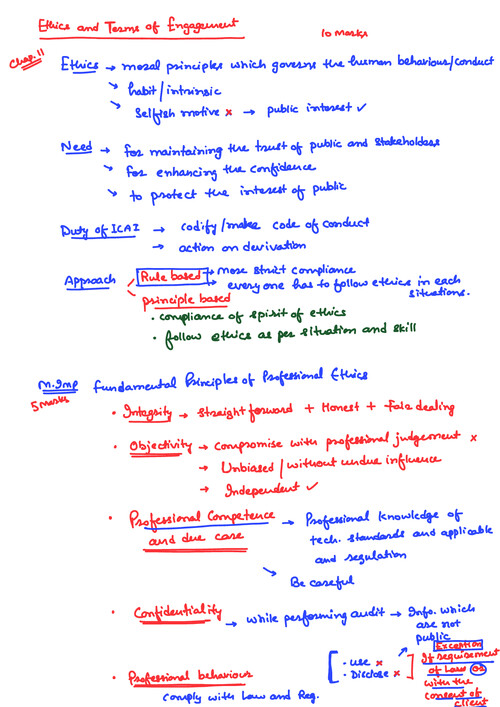 Ethics and Terms of Engagement
10 Marks
Chap. 11
Ethics → moral principles which governs the human behaviour/conduct
↘ habit/intrinsic
↘ Selfish motive × → public interest ✓
Need → for maintaining the trust of public and stakeholders
↘ for enhancing the confidence
↘ to protect the interest of public
Duty of ICAI → codify/make code of conduct
→ action on derivation
Approach Rule based → more strict compliance
→ every one has to follow ethics in each situations.
principle based
• compliance of spirit of ethics
• follow ethics as per situation and skill
M.Imp Fundamental Principles of Professional Ethics
5 Marks
• Integrity → straight forward + Honest + Fair dealing
• Objectivity → compromise with professional judgement ×
→ Unbiased / without undue influence
→ Independent ✓
• Professional Competence and due care → Professional knowledge of
tech. standards and applicable
and regulation
↘ Be careful
• Confidentiality → while performing audit → Info. which
are not
public
• use ×
• Disclose ×
Exception
If requirement
of Law or
with the
consent of
client
• Professional behaviour
Comply with Law and Reg.